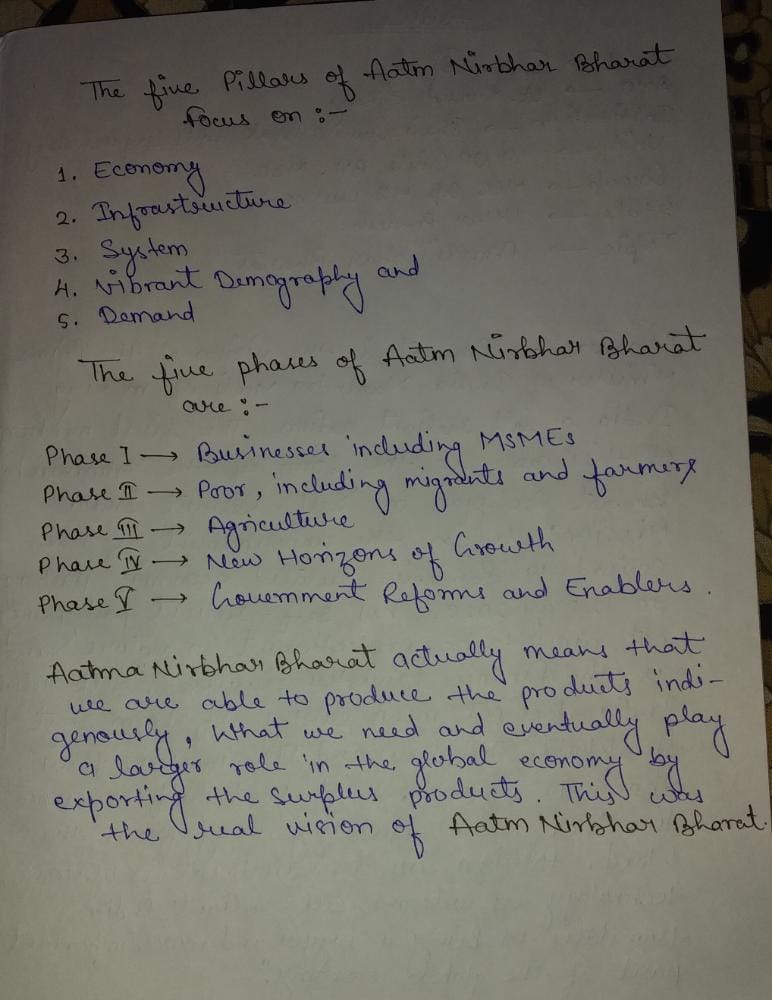 The five Pillars of Aatm Nirbhar Bharat
focus on :-
1. Economy
2. Infrastructure
3. System
4. Vibrant Demography and
5. Demand
The five phases of Aatm Nirbhar Bharat
are :-
Phase I → Businesses including MSMEs
Phase II → Poor, including migrants and farmers
Phase III → Agriculture
Phase IV → New Horizons of Growth
Phase V → Government Reforms and Enablers.
Aatma Nirbhar Bharat actually means that
we are able to produce the products indi-
genously, What we need and eventually play
a larger role in the global economy by
exporting the surplus products. This was
the real vision of Aatm Nirbhar Bharat.